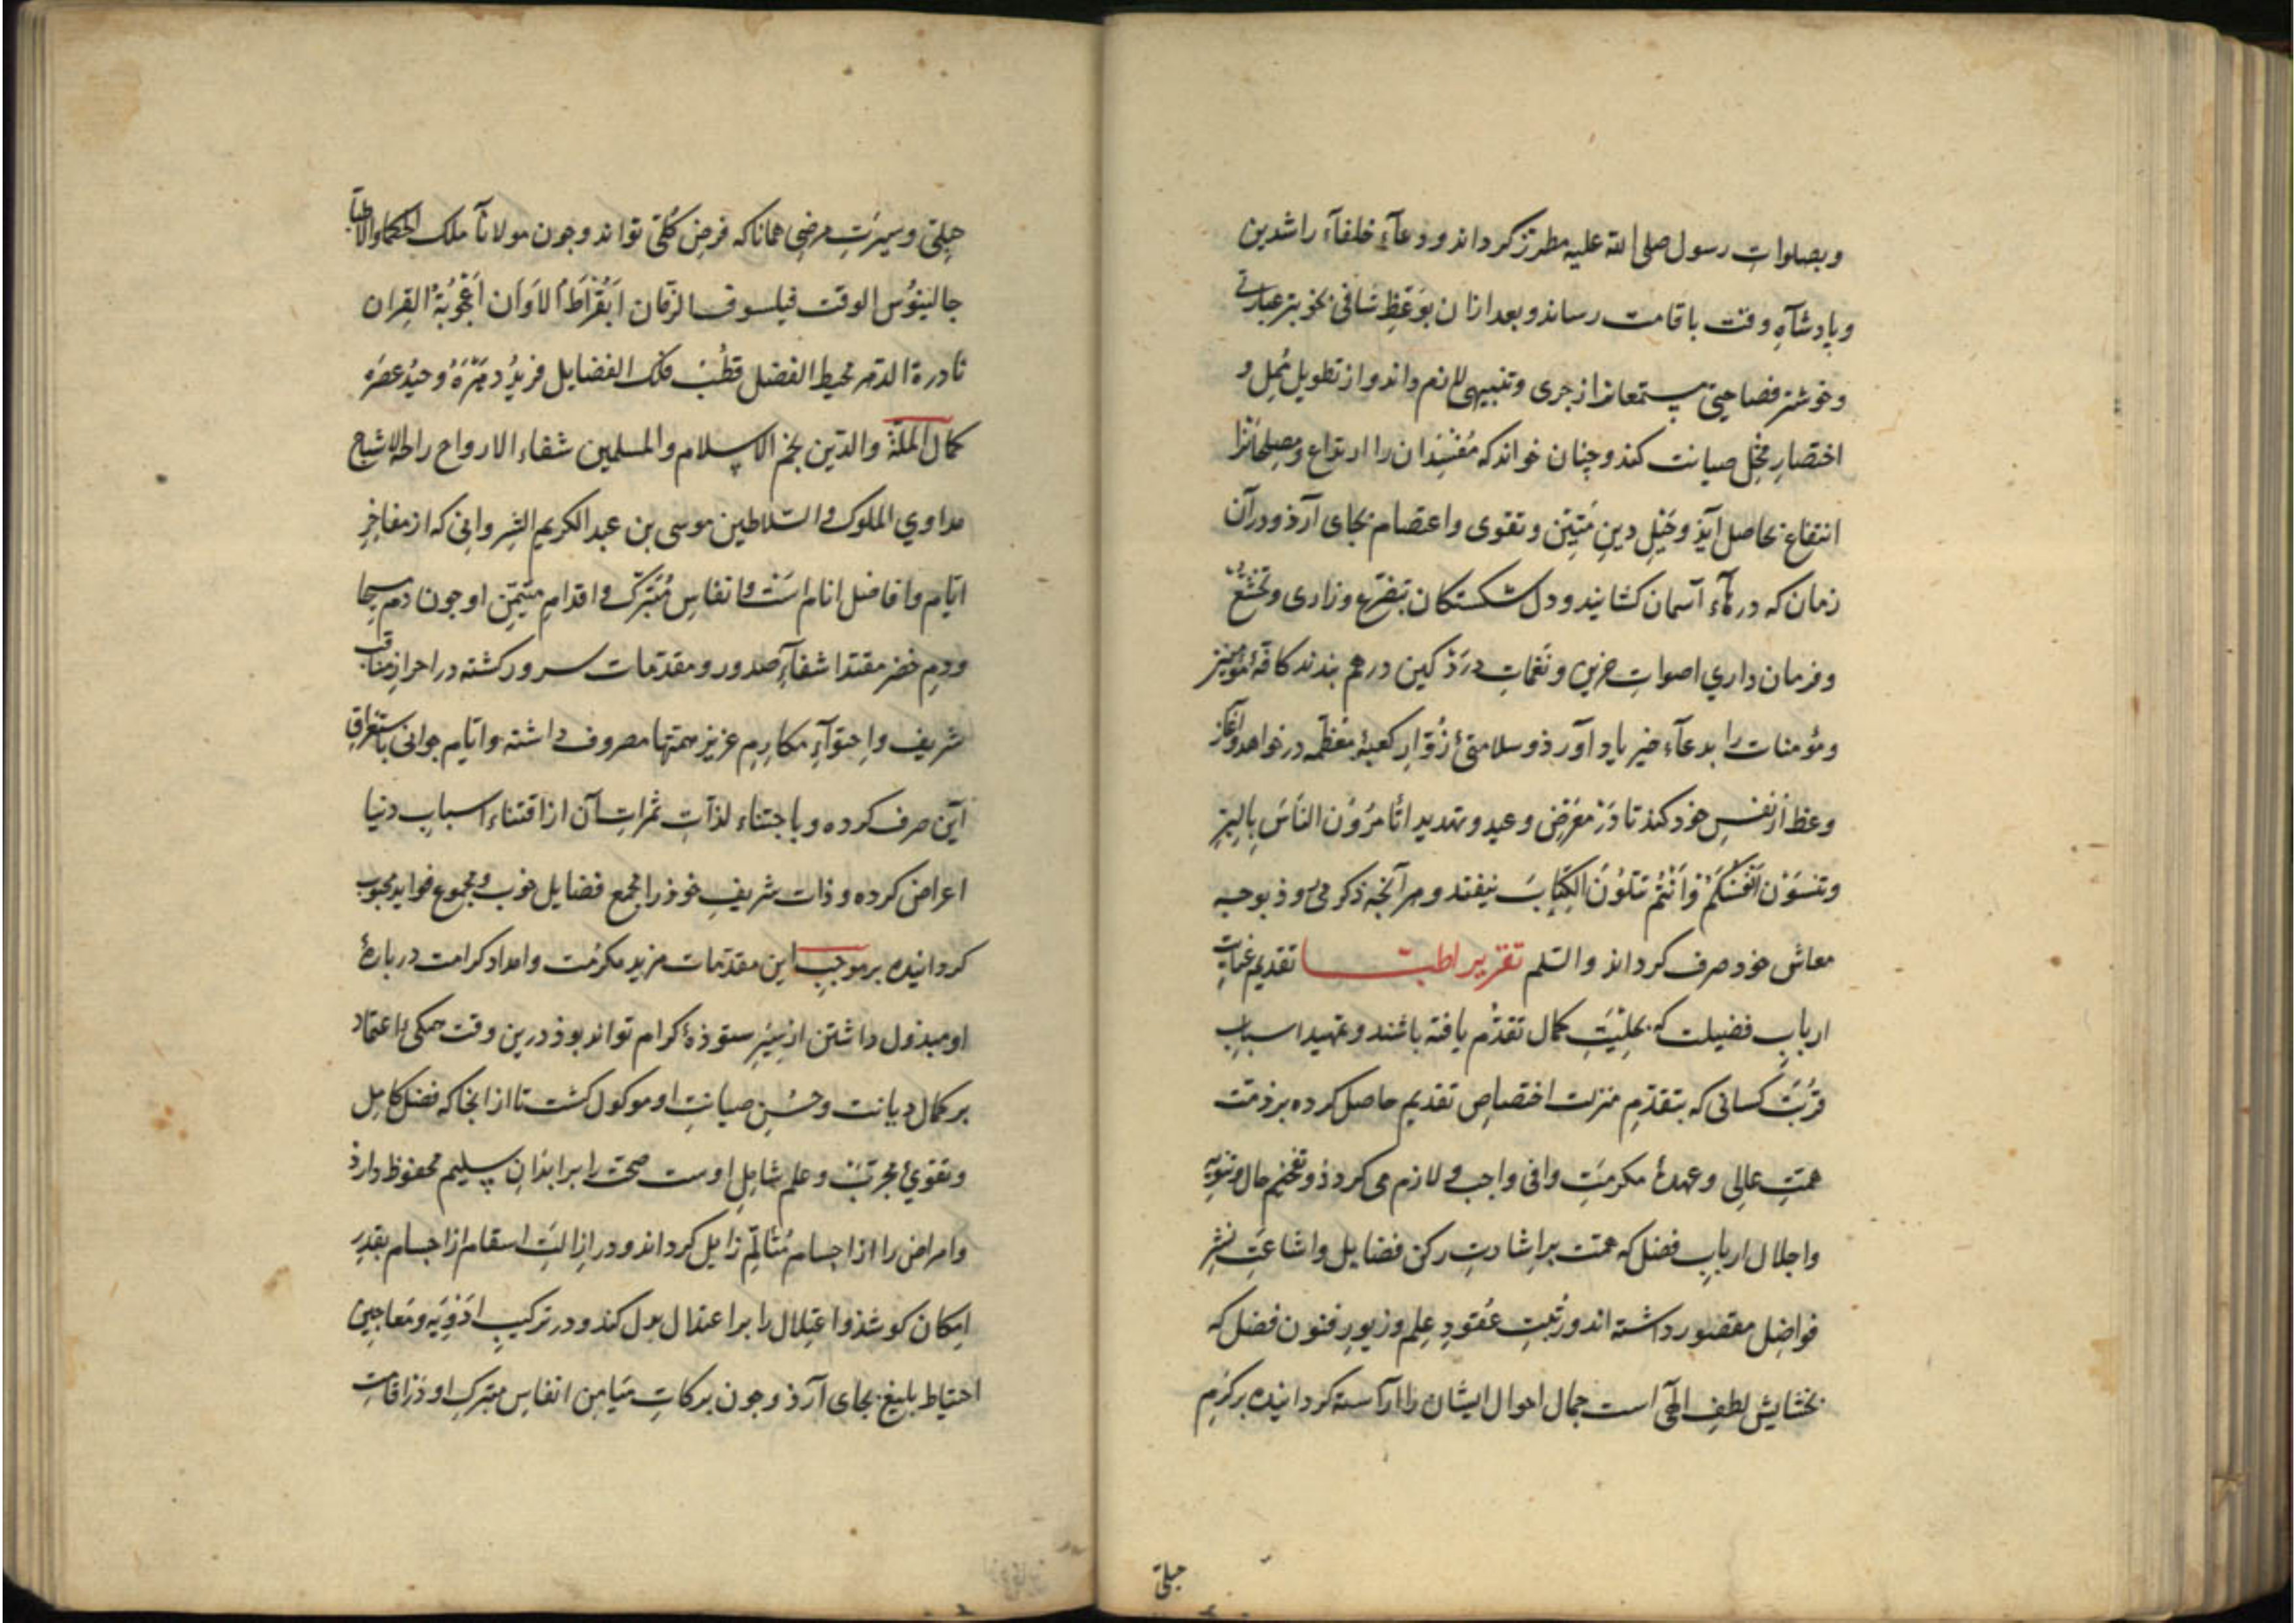 وبصلوات رسول صلی الله علیه مطرز کرداند ودعآء خلفآء راشدین
وپادشآهِ وقت باقامت رساند و بعد ازان بوَعظِ شافی بخوبتر عبارتی
وخوشتر فصاحتی مستمعانرا زجری وتنبیهی لازم داند واز تطویل مُمِل و
اختصارِ مخِل صیانت کند وچنان خواند که مُفسِدان را ارتداع ومصلحانرا
انتفاع بحاصل آیذ وحَبْلِ دینِ مَتِین وتقوی واعتصام بجای آرذ ودرآن
زمان که درهآء آسمان کشایند ودل شکستکان بتضرّع وزاری وتخشّع
وفرمان داریِ اصواتِ حزین ونَغماتِ درذ کین درهم بندند کافهٔ مؤمنین
ومؤمنات را بدعآء خیر یاد آورذ وسلامتیِٔ زُوّارِ کعبهٔ معظّمه درخواهد وآغاز
وعظ از نفسِ خود کند تا دَرْ مَعْرَضِ وعید وتهدید اتامُرُوْن الناسَ بِالبِرِّ
وتَنسَوْن اَنْفُسَکُمْ وَاَنْتُمْ تَتلُوْنَ الکِتابَ نیفتد وهر آنچه ذکر می روذ بوجه
معاش خود صرف کرداند والسّلم تقریر اطبّا تقدیم عنایتِ
اربابِ فضیلت که بحِلیَتِ کمال تقدّم یافته باشند وتمهید اسباب
قُربَتِ کسانی که بتقدّمِ منزلت اختصاصِ تقدیم حاصل کرده برذمّت
همّتِ عالی وعهدهٔ مکرمَتِ وافی واجب ولازم می کردذ وتفخیم حال وتنویهِ
واجلال اربابِ فضل که همت براشادتِ رکن فضایل واشاعَتِ نشر
فواضِل مقصور داشته اند وزینتِ عُقودِ عِلم وزیورِ فنون فضل که
بخشایش لطفِ الهی است جمال احوال ایشان را آراسته کردانیده برکَرَمِ
جبلّی
جِبلّی وسیرَتِ مرضِی همانا که فرضِ کُلّی تواند وچون مولانآ ملک الحکما والاطبا
جالینُوْس الوقت فیلسوف الزمان اَبُقْراطُ الاَوَان اُعْجُوْبَةُ القِران
نادرة الدهر محیط الفضل قطْب فلک الفضایل فریدُ دهرهُ وحیدُ عصرَه
کمال الملّة والدّین نجم الاسلام والمسلمین شفاء الارواح راحة الاشباح
مداوی الملوک والسّلاطین موسی بن عبدالکریم الشروانی که از مفاخِرِ
ایّام وافاضل انام است وانفاسِ مُتبرّک واقدامِ متیمّن او چون دمِ مسیحا
ودمِ خضر مقتدا شفآءِ صدور ومقدّمات سرور کشته دراحرازِ مناقب
شریف واِحتوآءِ مکارِمِ عزیز همتها مصروف داشته وایّام جوانی باستغراقِ
آین صرف کرده وباجتناء لذّاتِ ثمراتِ آن ازاقتناء اسبابِ دنیا
اعراض کرده وذات شریفِ خوذ را مجمع فضایل خوب ومجموع فواید محبوب
کردانیده برموجب این مقدّمات مزید مکرُمت وامداد کرامت دربارهٔ
او مبذول داشتن ازسِیَرِ ستوذهٔ کرام تواند بوذ درین وقت همکی اعتماد
برکمال دیانت وحُسْنِ صیانتِ او موکول کشت تا ازانجا که فضل کامِل
وتقویٔ مجرّب وعلم شامِلِ اوست صحّت را برابدَانِ سلیم محفوظ دارذ
وامراض را از اجسام مُتالّم زایل کرداند ودر ازالَتِ اسقام ازاجسام بقدِر
امکان کوشذ واعتِلال را براعتدال بدل کند ودر ترکیبِ ادْوِیَه ومَعاجِین
احتیاط بلیغ بجای آرذ وچون برکاتِ مَیامِن انفاسِ متبرک او دراقامت